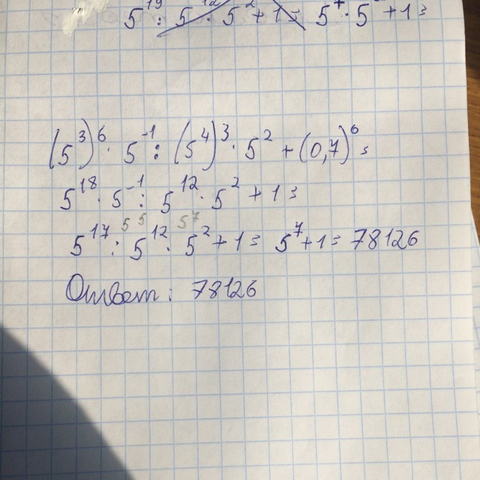 5¹⁹ : 5¹² · 5² + 1 = 5⁷ · 5² + 1 =
(5³)⁶ · 5⁻¹ : (5⁴)³ · 5² + (0,7)⁶ =
5¹⁸ · 5⁻¹ : 5¹² · 5² + 1 =
5⁵ 5⁷
5¹⁷ : 5¹² · 5² + 1 = 5⁷ + 1 = 78126
Ответ: 78126